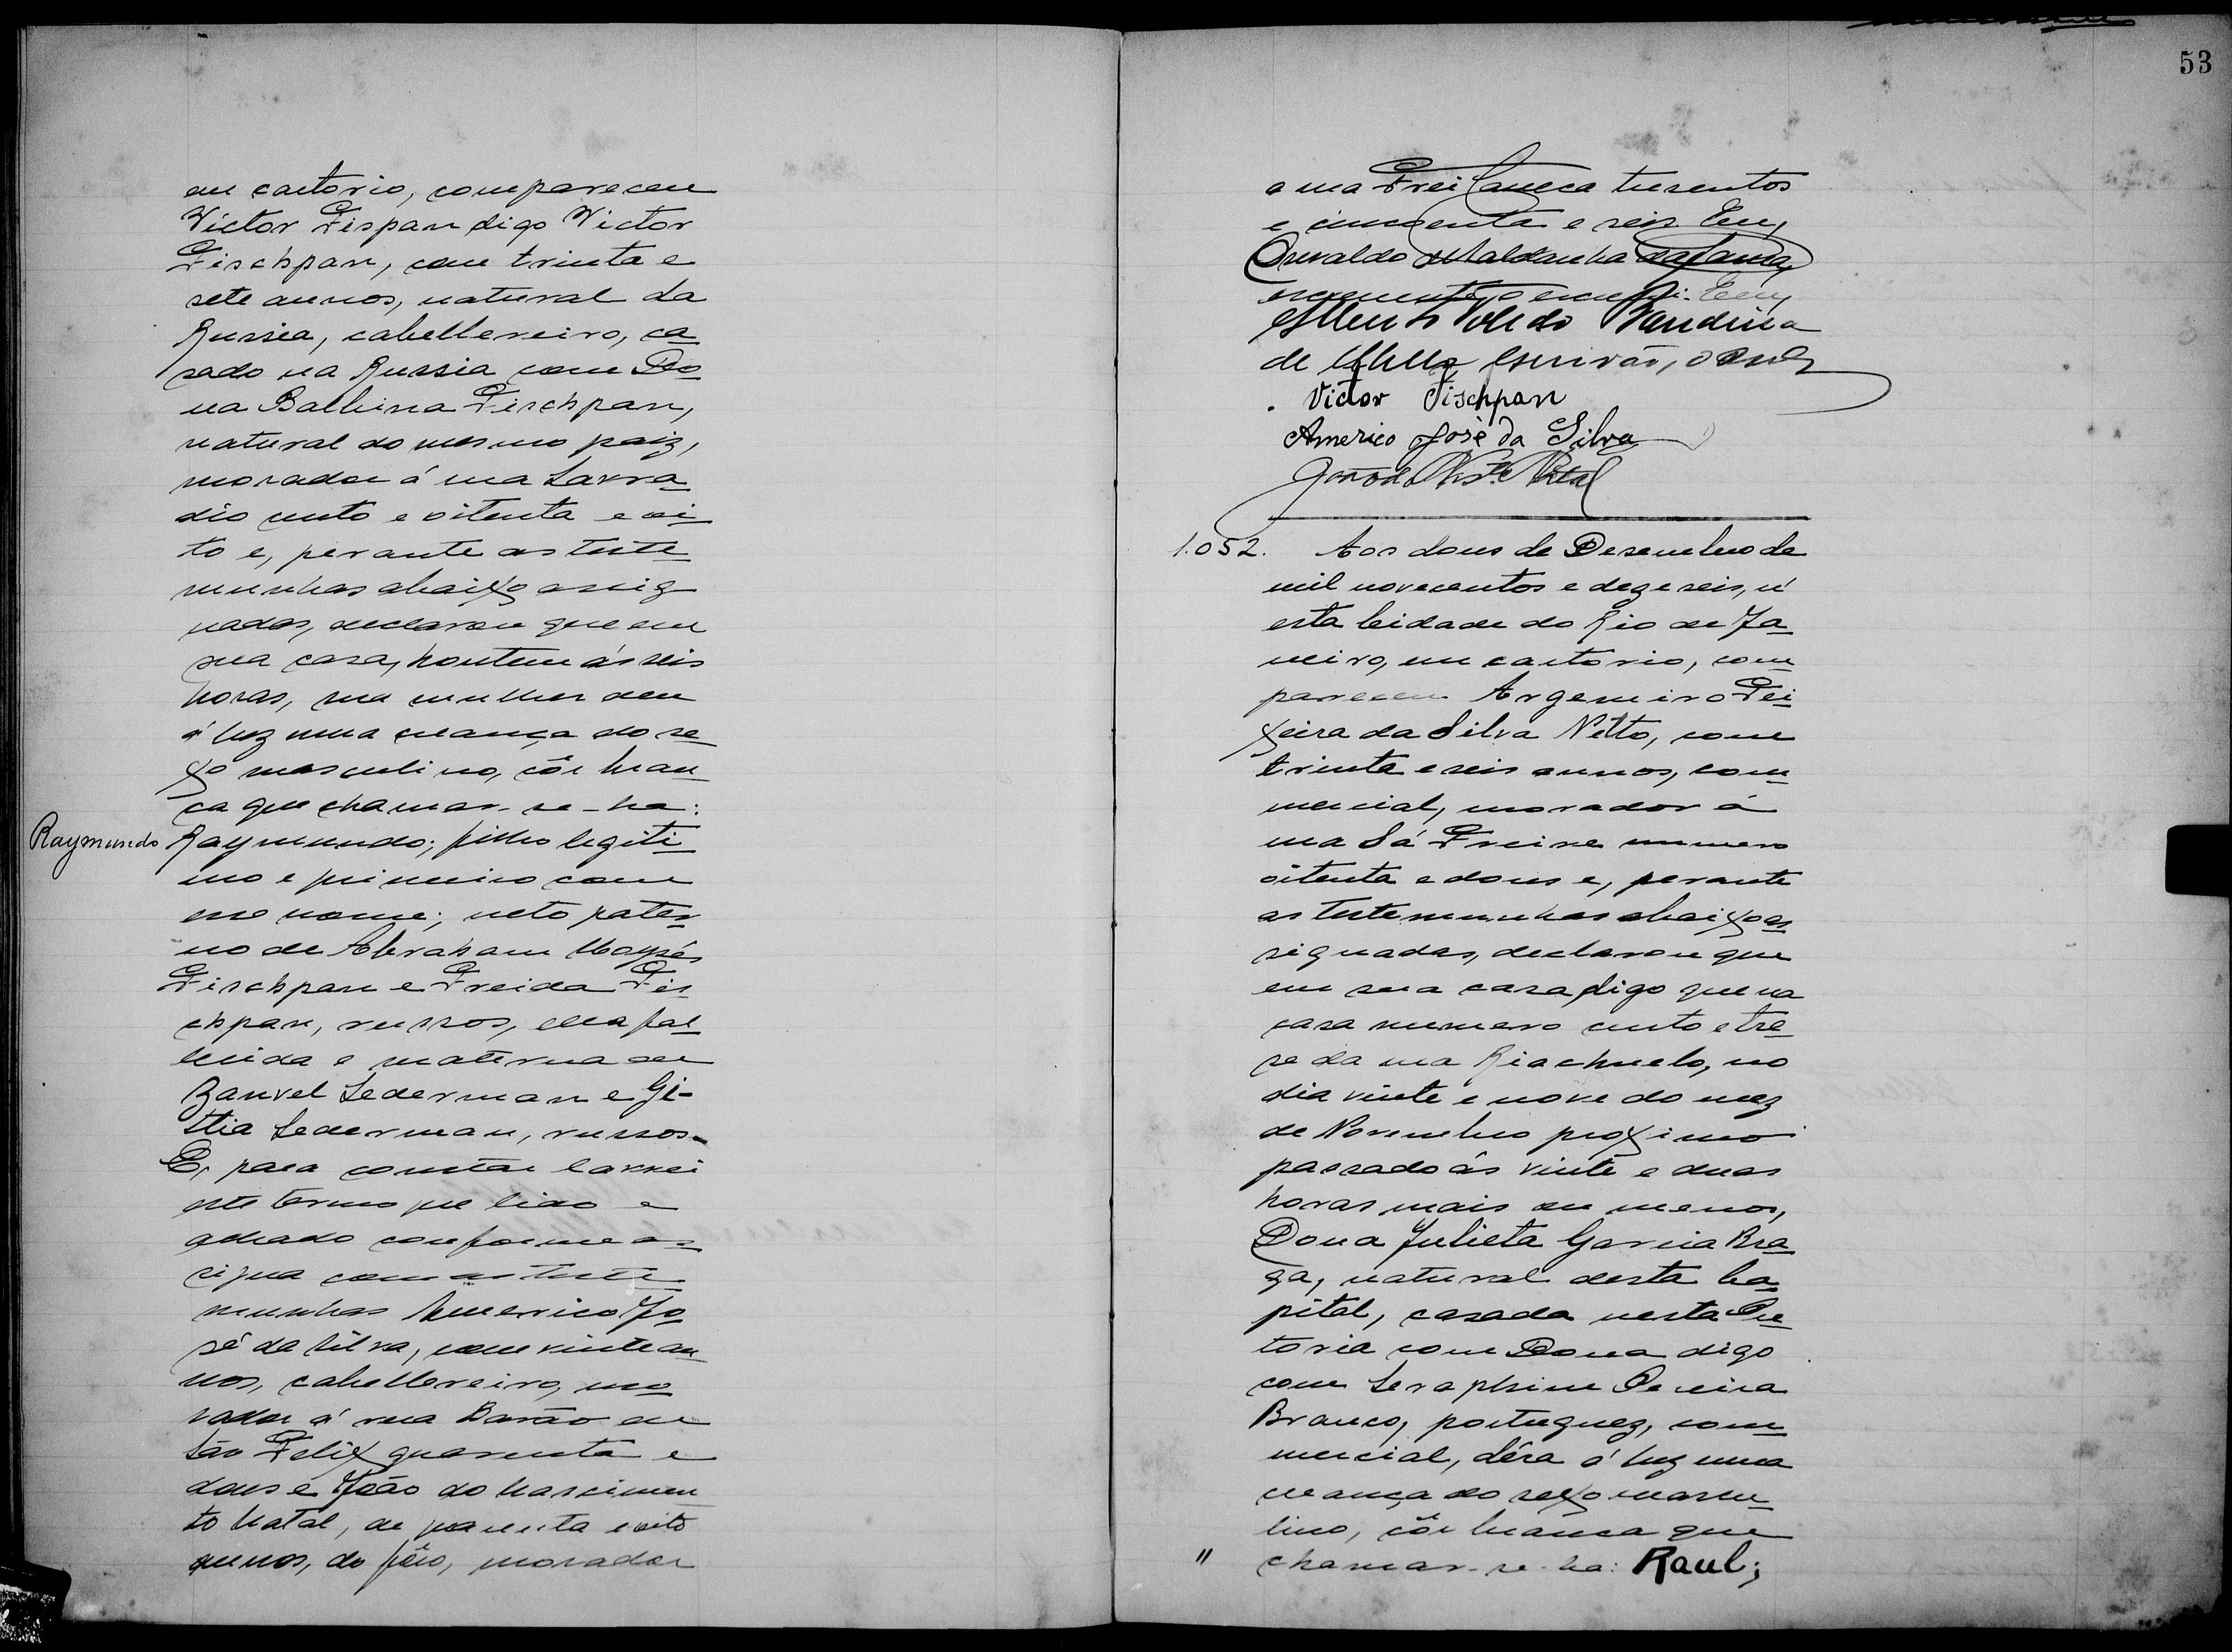 em cartorio, compareceu
Victor Fispan digo Victor
Fischpan, com trinta e
sete annos, natural da
Russia, cabelleireiro, ca
sado na Russia com Do
na Balbina Fischpan,
natural do mesmo paiz,
morador á rua Lavra
dio cento e oitenta e oi
to e, perante as teste
munhas abaixo assig
nadas, declarou que em
sua casa, hontem ás seis
horas, sua mulher deu
á luz uma creança do se
xo masculino, côr bran
ca que chamar-se-ha:
Raymundo Raymundo; filho legiti
mo e primeiro com
esse nome; neto pater
no de Abraham Moysés
Fischpan e Freida Fis
chpan, russos, ella fal
lecida e materna de
Zanvel Lederman e Gi-
ttia Lederman, russos.
E, para constar lavrei
este termo que lido e
achado conforme as
signa com as teste
munhas Americo Jo
sé da Silva, com vinte an
nos, cabelleireiro, mo
rador á rua Barão de
São Felix quarenta e
dous e João do Nascimen
to Natal, de quarenta e oito
annos, do fôro, morador
53
a rua Frei Caneca tresentos
e cincoenta e seis. Eu,
Oswaldo Maldanha da Gama,
escrevente, o escrevi. Eu,
Toledo Bandeira
de Mello, Escrivão, o
Victor Fischpan
Americo José da Silva
João do Nasc.to Natal
1.052. Aos dous de Desembro de
mil novecentos e dezeseis, n'
esta Cidade do Rio de Ja
neiro, em cartorio, com
pareceu Argemiro Tei
xeira da Silva Netto, com
trinta e seis annos, com
mercial, morador á
rua Sá Freire numero
oitenta e dous e, perante
as testemunhas abaixo as
signadas, declarou que
em sua casa, digo que na
casa numero cento e tre
se da rua Riachuelo, no
dia vinte e nove do mez
de Novembro proximo
passado ás vinte e duas
horas mais ou menos,
Dona Julieta Garcia Bra
ga, natural desta Ca
pital, casada nesta Pre
toria com Dona digo
com Seraphim Pereira
Branco, portuguez, com
mercial, déra á luz uma
creança do sexo mascu
lino, côr branca que
" chamar-se-ha: Raul;